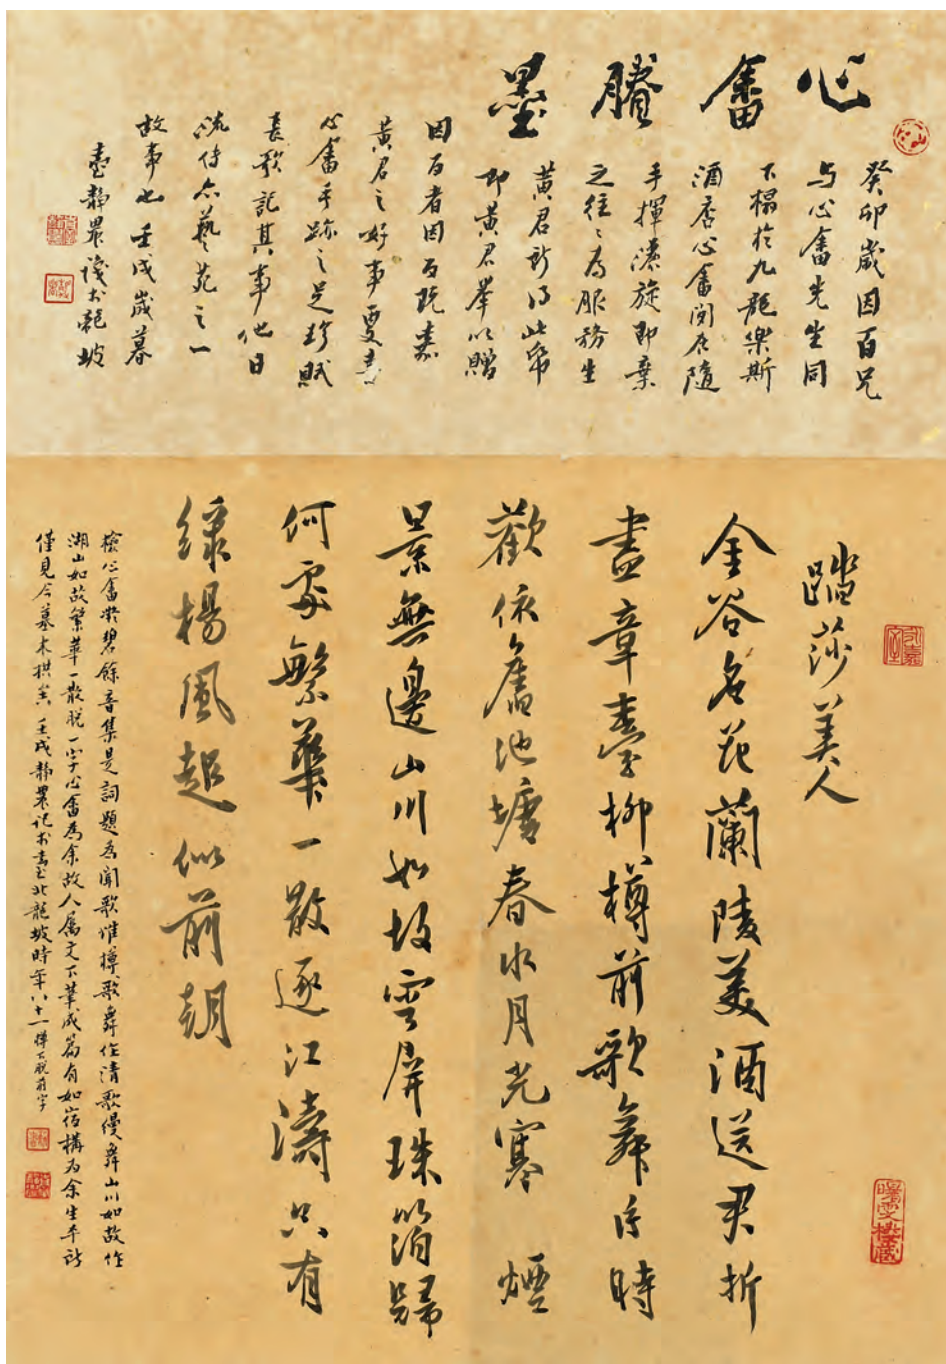 心畬賸墨
癸卯歲因百兄
与心畬先生同
下榻於九龍樂斯
酒店心畬閑居隨
手揮灑旋即棄
之往往為服務生
黃君所得此帋
即黃君舉以贈
因百者因百既嘉
黃君之好事更喜
心畬手跡之足珍賦
長歌記其事他日
流傳亦藝苑之一
故事也壬戌歲暮
臺靜農識於龍坡
踏莎美人
金谷名花蘭陵美酒送君折
盡章臺柳樽前歌舞片時
歡依舊池塘春水月光寒 煙
景無邊山川如故雲屏珠箔歸
何處繁華一散逐江濤只有
綠楊風起似前朝
檢心畬凝碧餘音集是詞題為聞歌惟樽歌舞作清歌慢舞山川如故作
湖山如故繁華一散脫一字心畬為余故人屬文下筆成篇有如宿構為余生平所
僅見今墓木拱矣壬戌靜農記於臺北龍坡時年八十一樽下脫前字